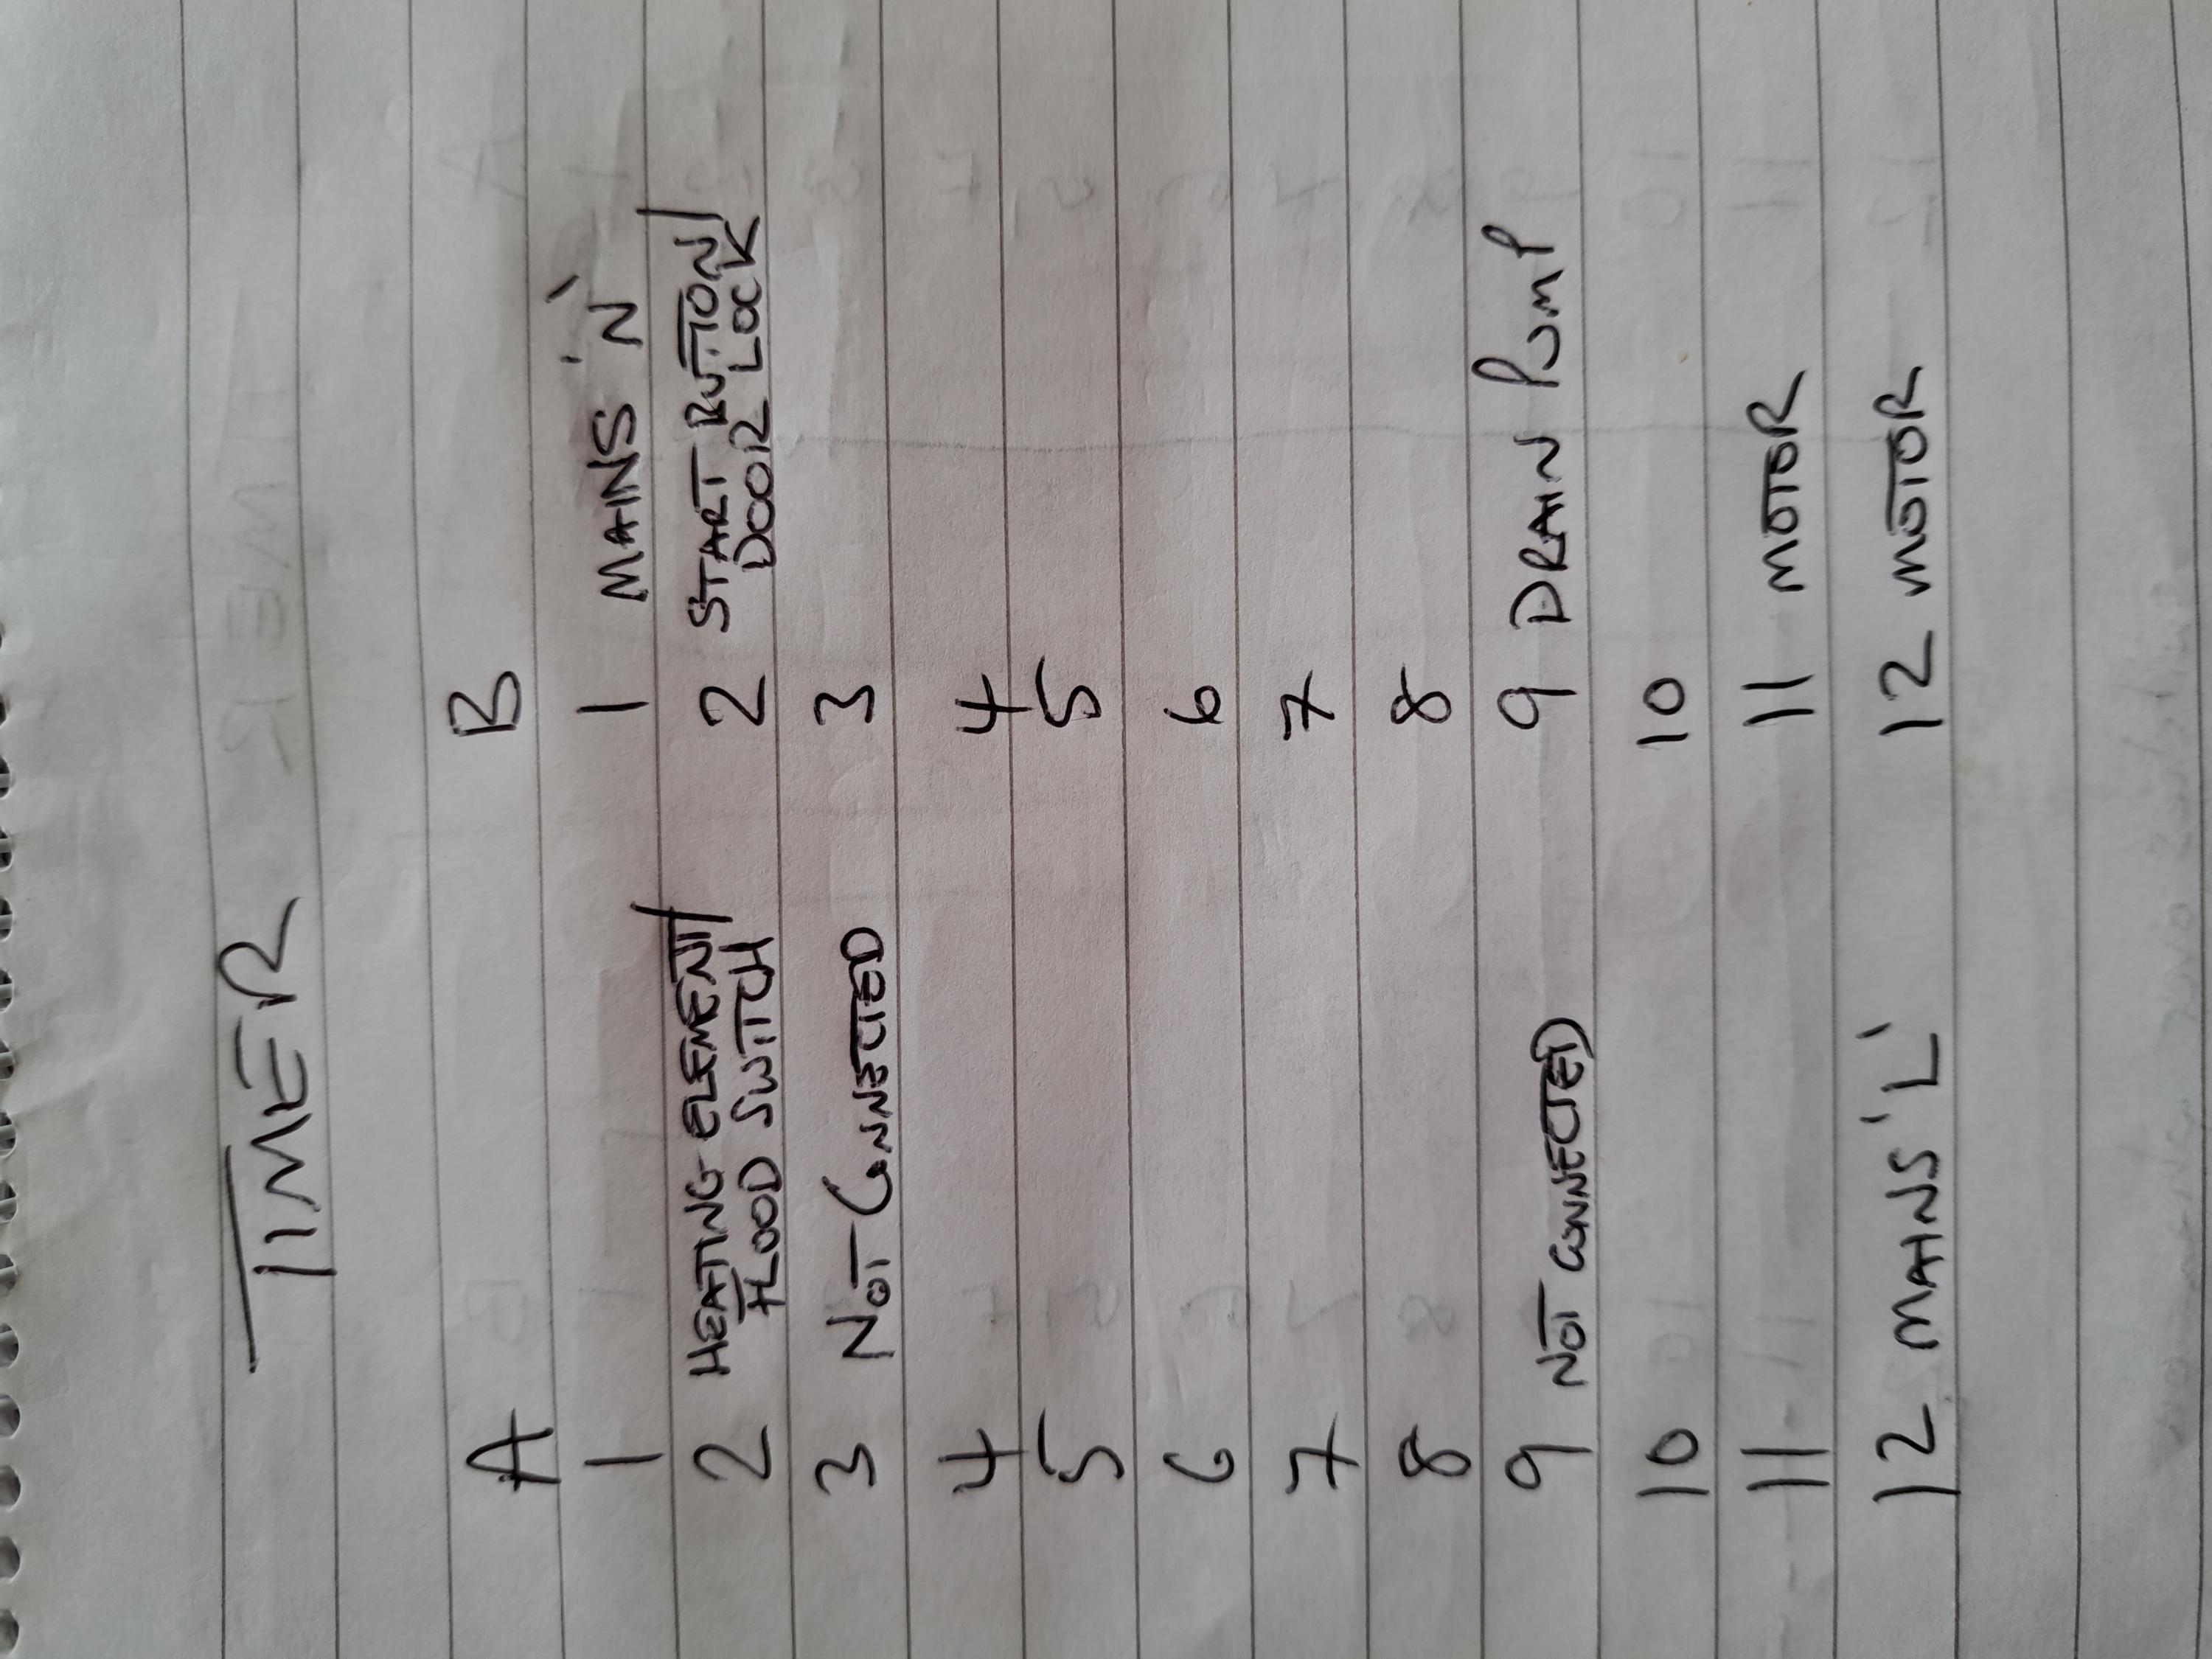 TIMER
A B
1 1 MAINS 'N'
2 HEATING ELEMENT/ 2 START BUTTON/
FLOOD SWITCH DOOR LOCK
3 NOT CONNECTED 3
4 4
5 5
6 6
7 7
8 8
9 NOT CONNECTED 9 DRAIN PUMP
10 10
11 11 MOTOR
12 MAINS 'L' 12 MOTOR